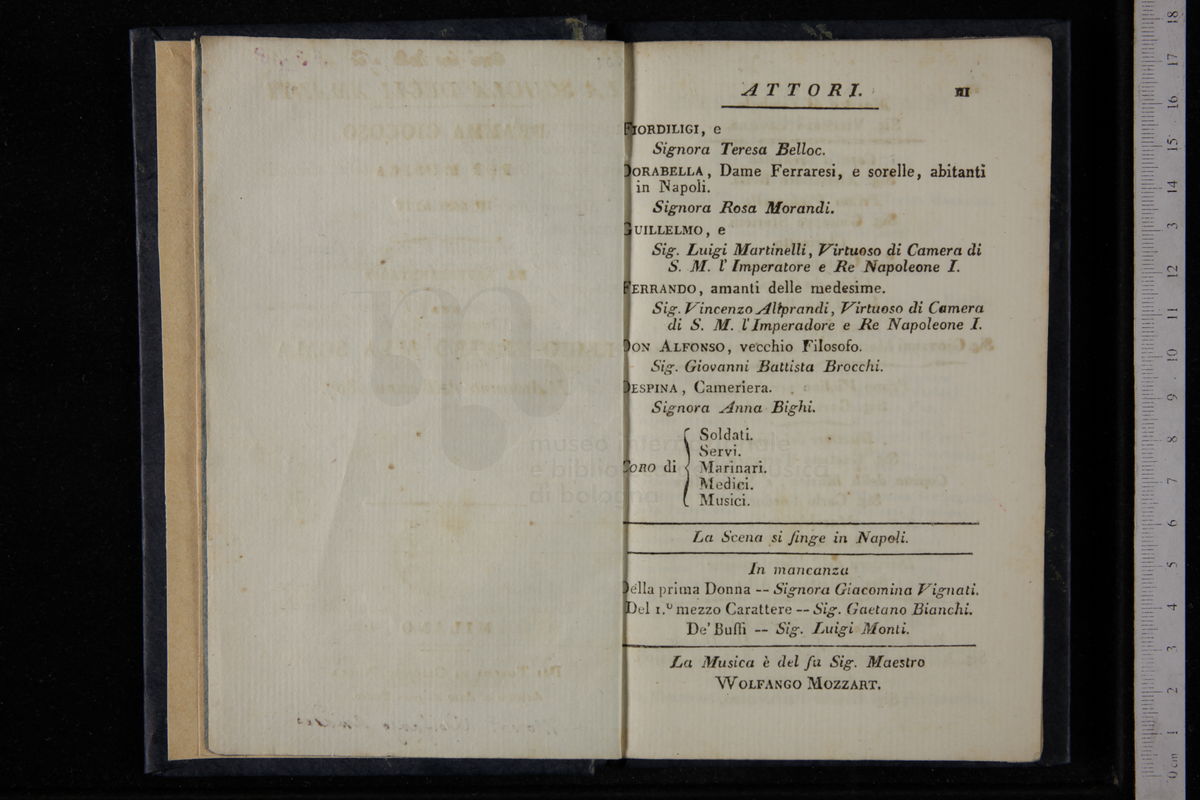 ATTORI. III
FIORDILIGI, e
Signora Teresa Belloc.
DORABELLA, Dame Ferraresi, e sorelle, abitanti
in Napoli.
Signora Rosa Morandi.
GUILLELMO, e
Sig. Luigi Martinelli, Virtuoso di Camera di
S. M. l'Imperatore e Re Napoleone I.
FERRANDO, amanti delle medesime.
Sig. Vincenzo Aliprandi, Virtuoso di Camera
di S. M. l'Imperadore e Re Napoleone I.
DON ALFONSO, vecchio Filosofo.
Sig. Giovanni Battista Brocchi.
DESPINA, Cameriera.
Signora Anna Bighi.
CORO di
Soldati.
Servi.
Marinari.
Medici.
Musici.
La Scena si finge in Napoli.
In mancanza
Della prima Donna -- Signora Giacomina Vignati.
Del 1.º mezzo Carattere -- Sig. Gaetano Bianchi.
De' Buffi -- Sig. Luigi Monti.
La Musica è del fu Sig. Maestro
WOLFANGO MOZZART.
museo internazionale
e biblioteca della musica
di bologna
0 cm 1 2 3 4 5 6 7 8 9 10 11 12 13 14 15 16 17 18